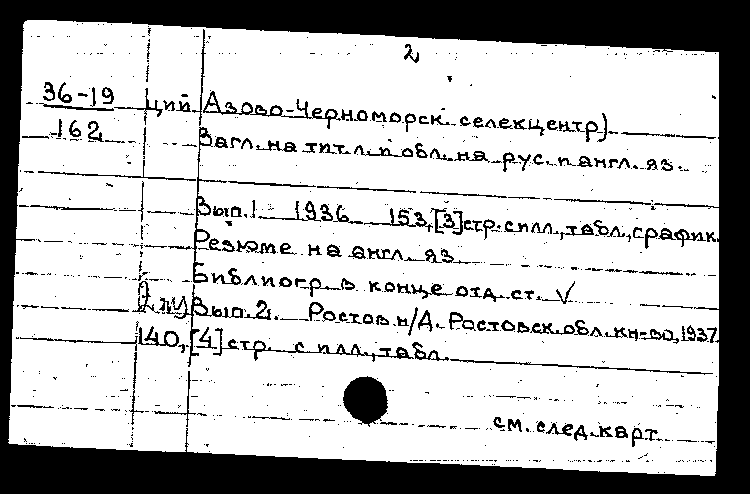 2
36-19 ций Азово-Черноморск. селекцентр)
162 Загл. на тит. л. и обл. на рус. и англ. яз.
Вып. 1 1936 153,[3]стр. с илл., табл., график.
Резюме на англ. яз.
Библиогр. в конце отд. ст. V
Вып. 2. Ростов н/Д. Ростовск. обл. кн-во, 1937.
140,[4]стр. с илл., табл.
см. след. карт.